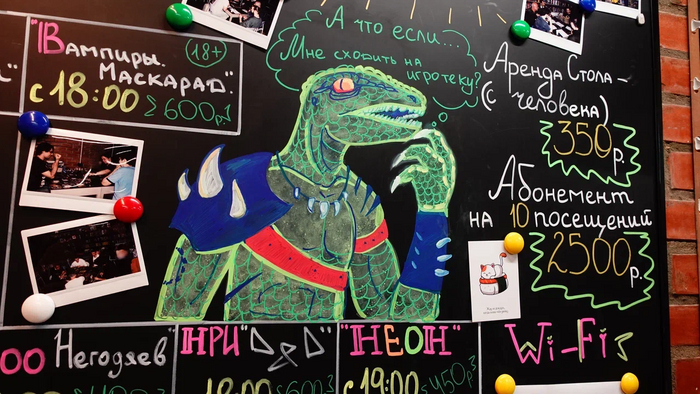 А что если...
Мне сходить на
игротеку?
"Вампиры.
Маскарад".
18+
с 18:00
600р
Аренда Стола -
(с человека)
350р.
Абонемент
на 10 посещений
2500р.
Негодяев"
НРИ "D&D"
"НЕОН"
с 19:00
450р
Wi-Fi